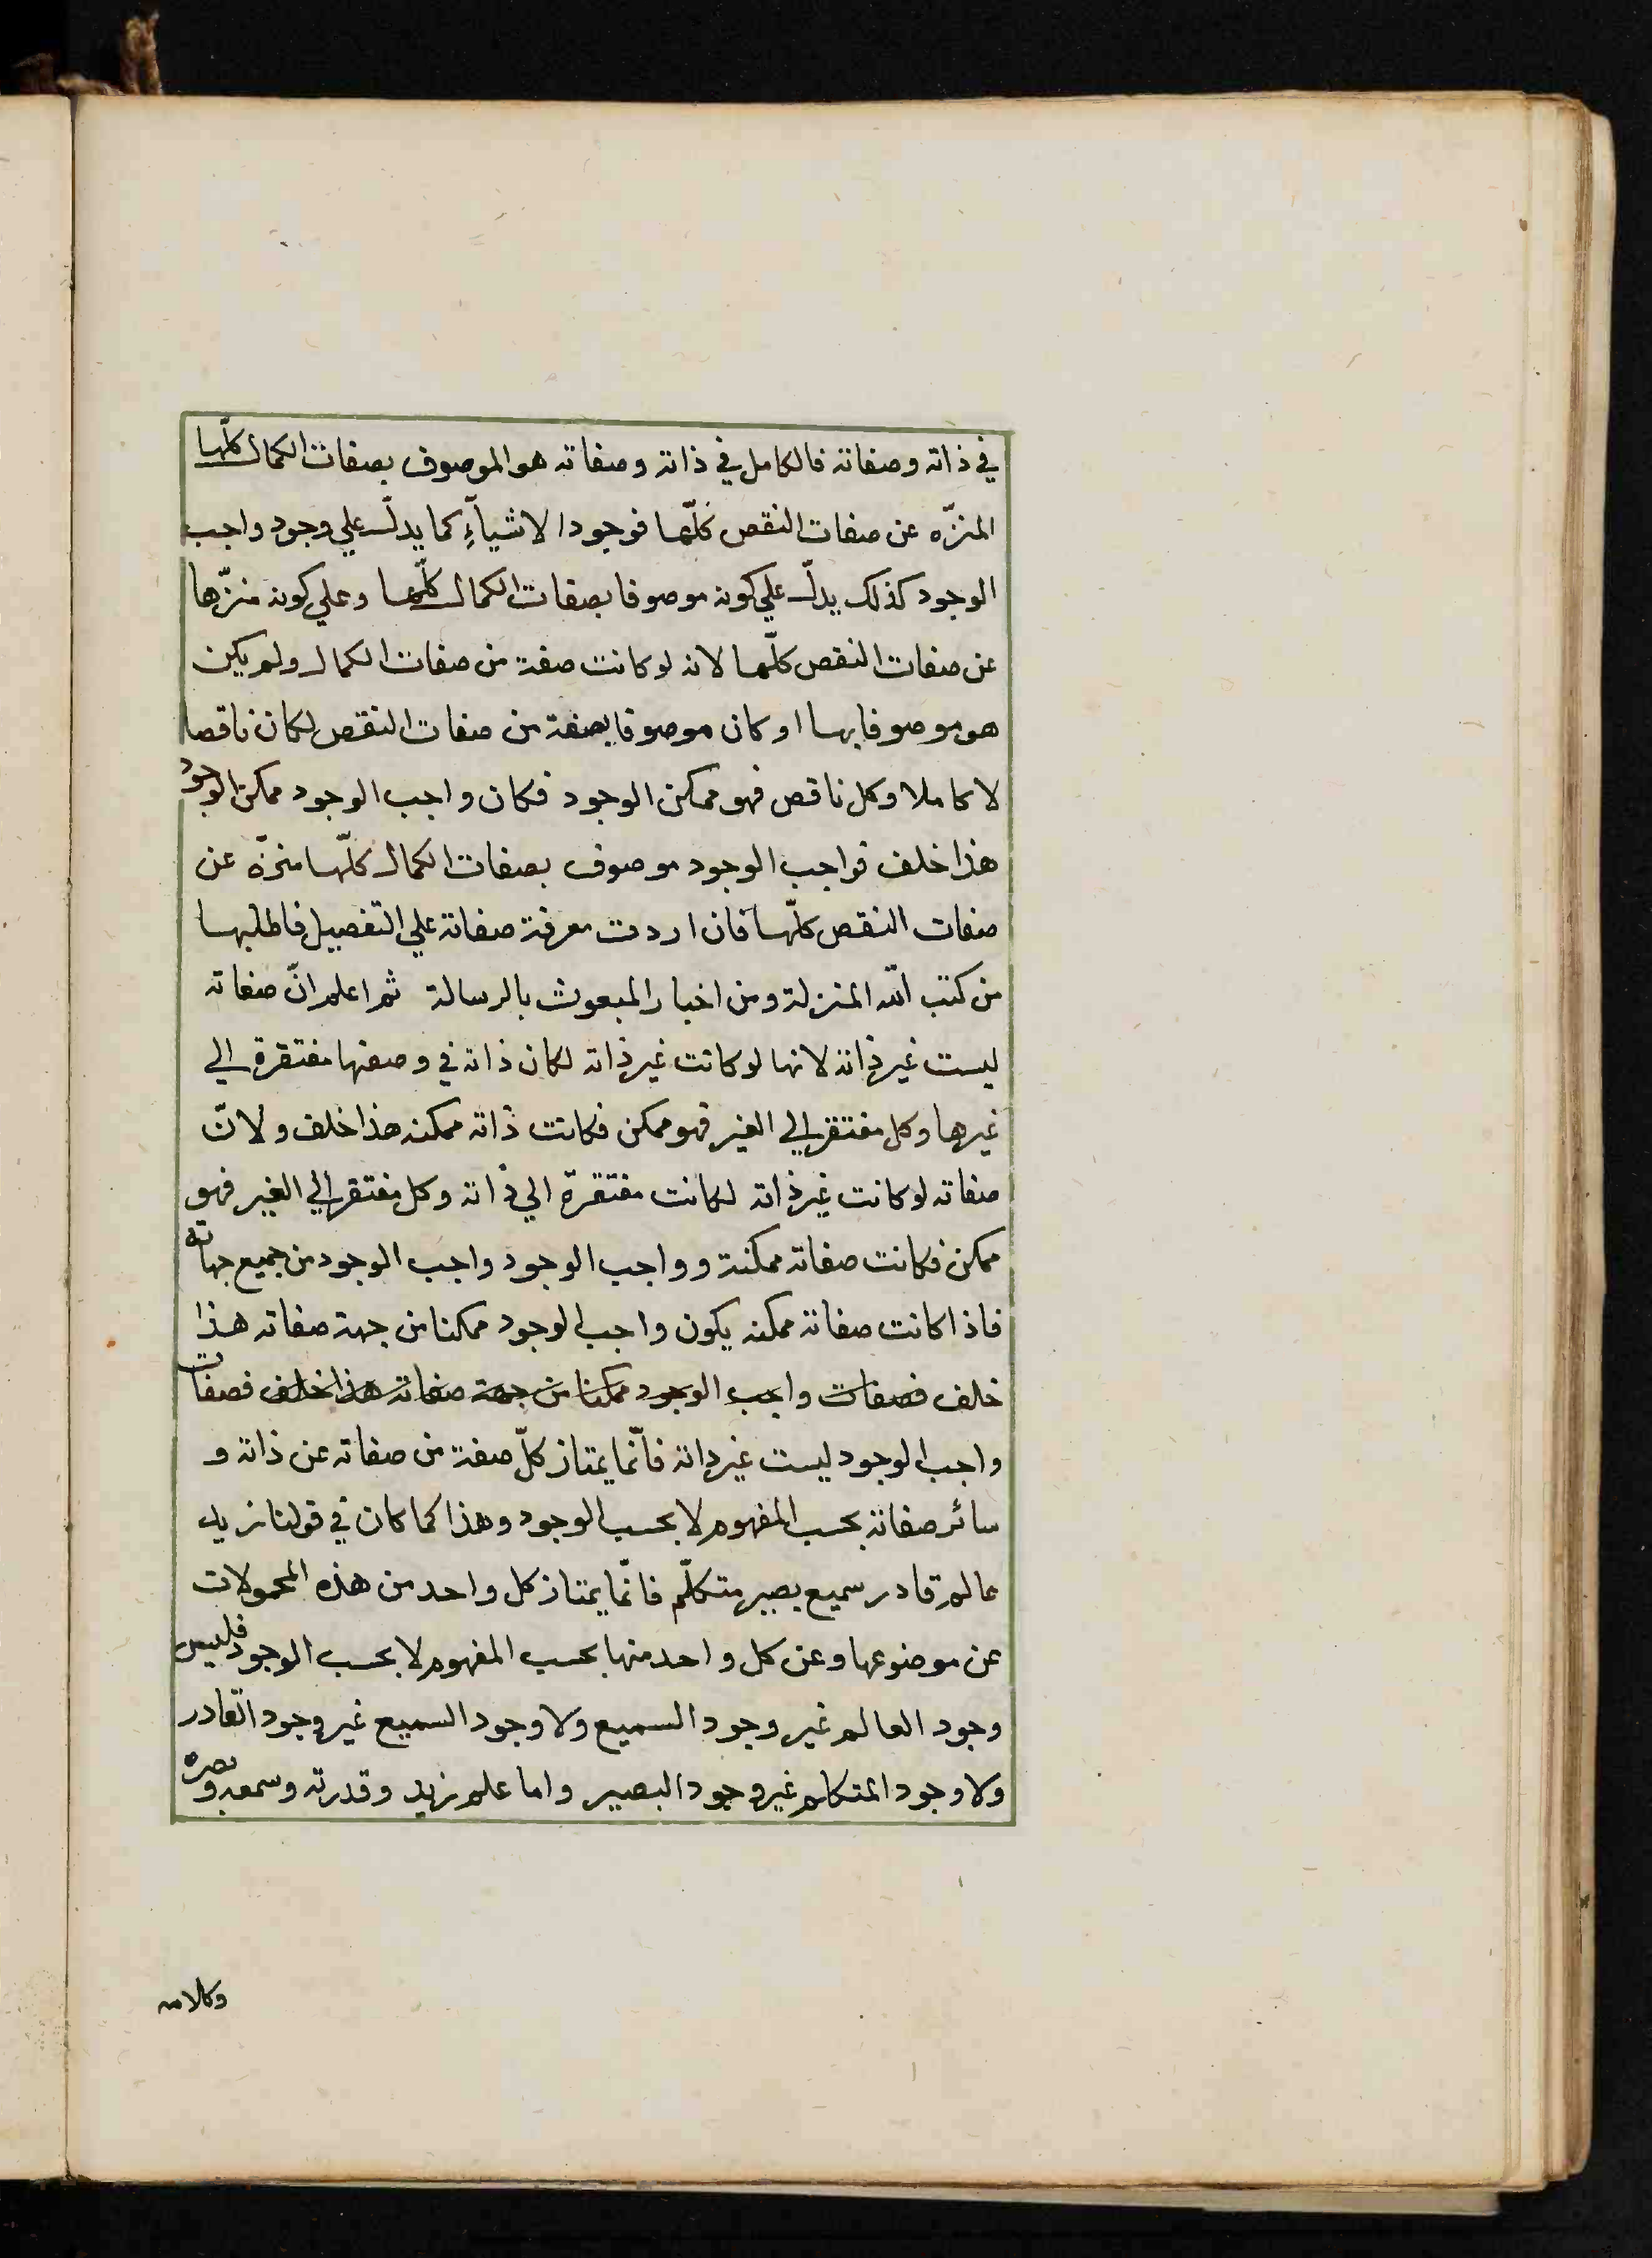 في ذاته وصفاته فالكامل في ذاته وصفاته هو الموصوف بصفات الكمال كلّها
المنزّه عن صفات النقص كلّها فوجود الاشيآءِ كما يدلّ علي وجود واجب
الوجود كذلك يدلّ علي كونه موصوفا بصفات الكمال كلّها وعلي كونه منزّها
عن صفات النقص كلّها لانه لو كانت صفة من صفات الكمال ولم يكن
هو موصوفا بها او كان موصوفا بصفة من صفات النقص لكان ناقصا
لا كاملا وكل ناقص فهو ممكن الوجود فكان واجب الوجود ممكن الوجود
هذا خلف فواجب الوجود موصوف بصفات الكمال كلّها منزّه عن
صفات النقص كلّها فان اردت معرفة صفاته علي التفصيل فاطلبها
من كتب اللّه المنزلة ومن اخبار المبعوث بالرسالة ثم اعلم انّ صفاته
ليست غير ذاته لانها لو كانت غير ذاته لكان ذاته في وصفها مفتقرة الي
غيرها وكل مفتقر الي الغير فهو ممكن فكانت ذاته ممكنه هذا خلف ولانّ
صفاته لو كانت غير ذاته لكانت مفتقرة الي ذاته وكل مفتقر الي الغير فهو
ممكن فكانت صفاته ممكنة وواجب الوجود واجب الوجود من جميع جهاته
فاذا كانت صفاته ممكنه يكون واجب الوجود ممكنا من جهة صفاته هذا
خلف فصفات واجب الوجود ممكنا من جهة صفاته هذا خلف فصفات
واجب الوجود ليست غير ذاته فانّما يمتاز كلّ صفة من صفاته عن ذاته و
سائر صفاته بحسب المفهوم لا بحسب الوجود وهذا كما كان في قولنا زيد
عالم قادر سميع بصير متكلّم فانّما يمتاز كل واحد من هذه المحمولات
عن موضوعها وعن كل واحد منها بحسب المفهوم لا بحسب الوجود فليس
وجود العالم غير وجود السميع ولا وجود السميع غير وجود القادر
ولا وجود المتكلم غير وجود البصير واما علم زيد وقدرته وسمعه وبصره
وكلامه